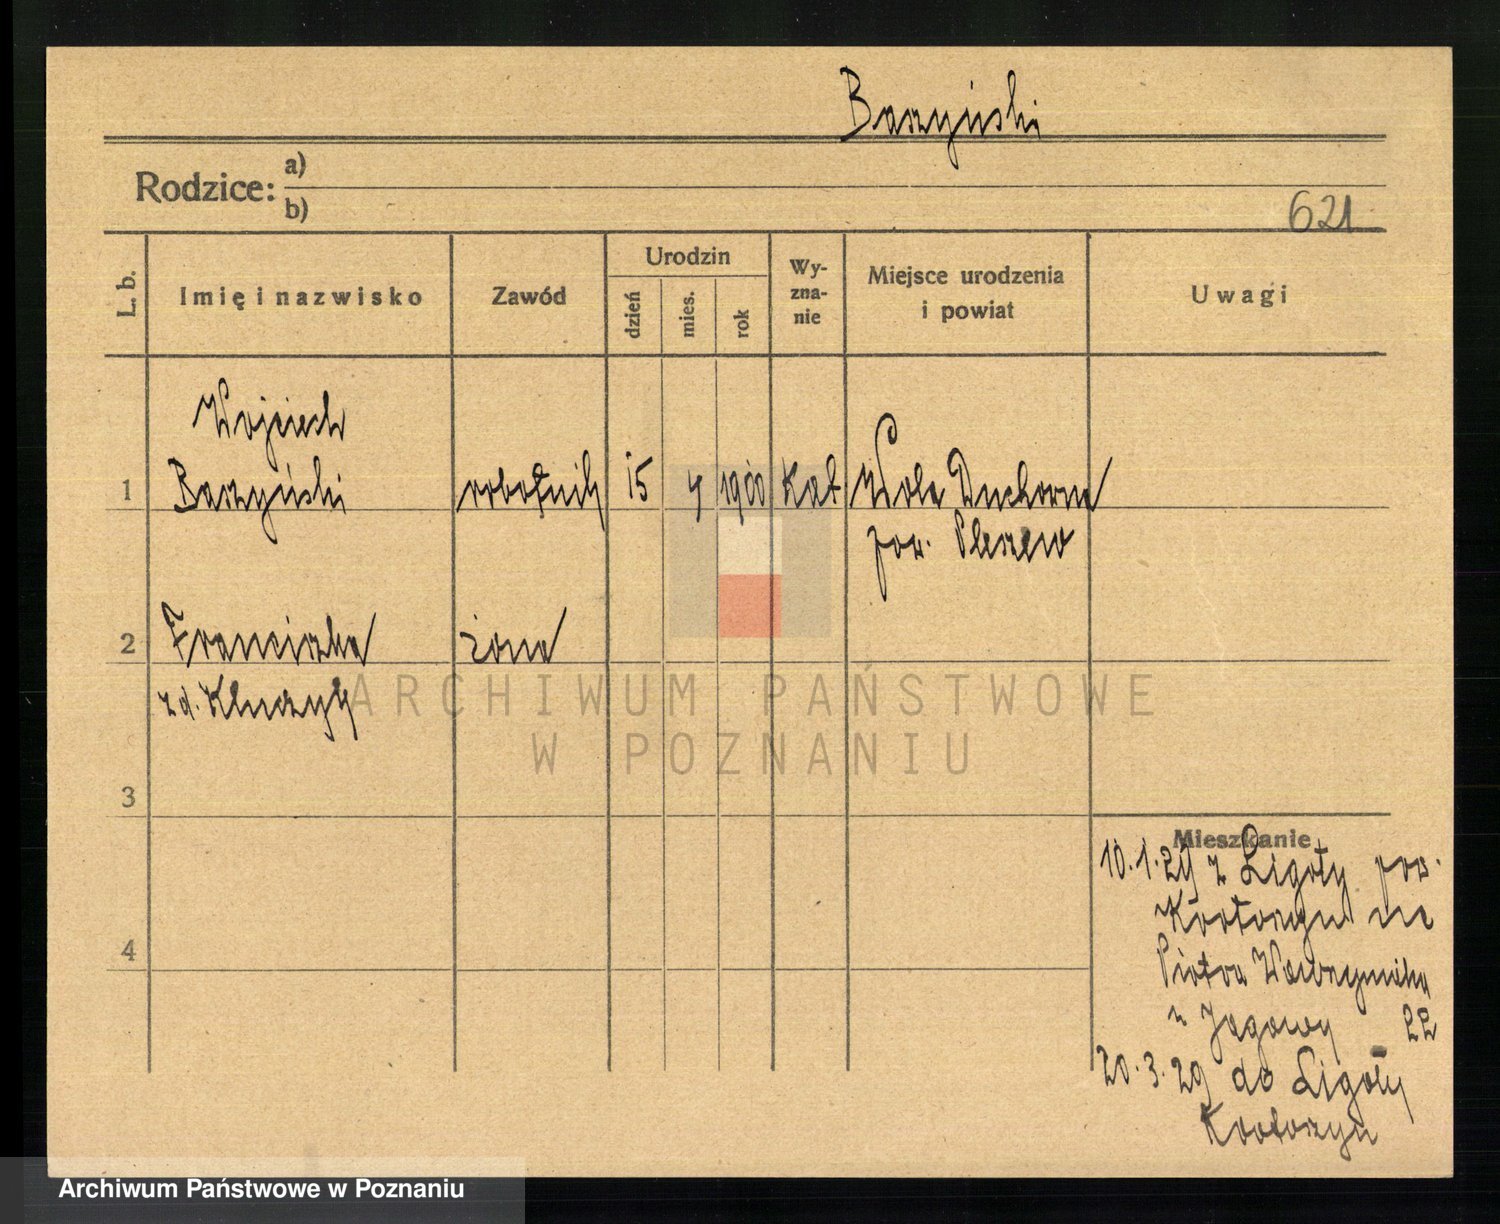 Baszyński
Rodzice: a)
b)
621
L. b.
Imię i nazwisko
Zawód
Urodzin
dzień
mies.
rok
Wy-
zna-
nie
Miejsce urodzenia
i powiat
Uwagi
Wojciech
1 Baszyński robotnik 15 4 1900 Kat Wola Duchowna
pow. Pleszew
2 Franciszka żona
zd.
ARCHIWUM PAŃSTWOWE
W POZNANIU
3
Mieszkanie
10.1.29 z Ligoty pow.
Krotoszyn na
4
Piotra Wawrzyniaka
22
20.3.29 do Ligoty
Krotoszyn
Archiwum Państwowe w Poznaniu